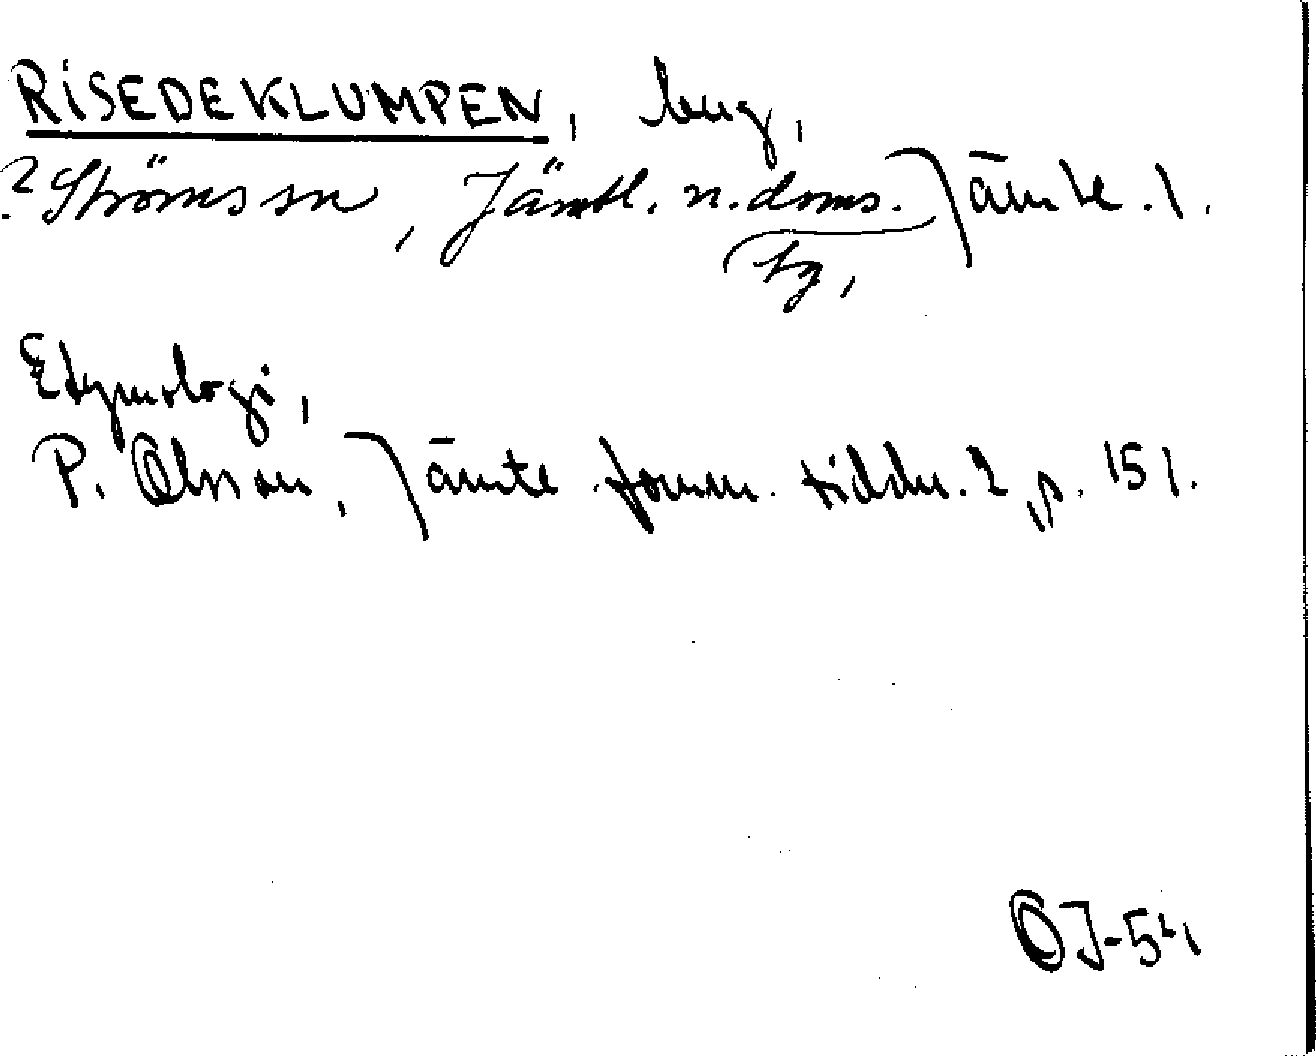 RISEDEKLUMPEN, berg,
? Ströms sn, Jämtl. n. doms. Jämtl.
tg,
Etymologi,
P. Olsson, Jämte fornm. tiddr. 2, p. 151.
OJ-54